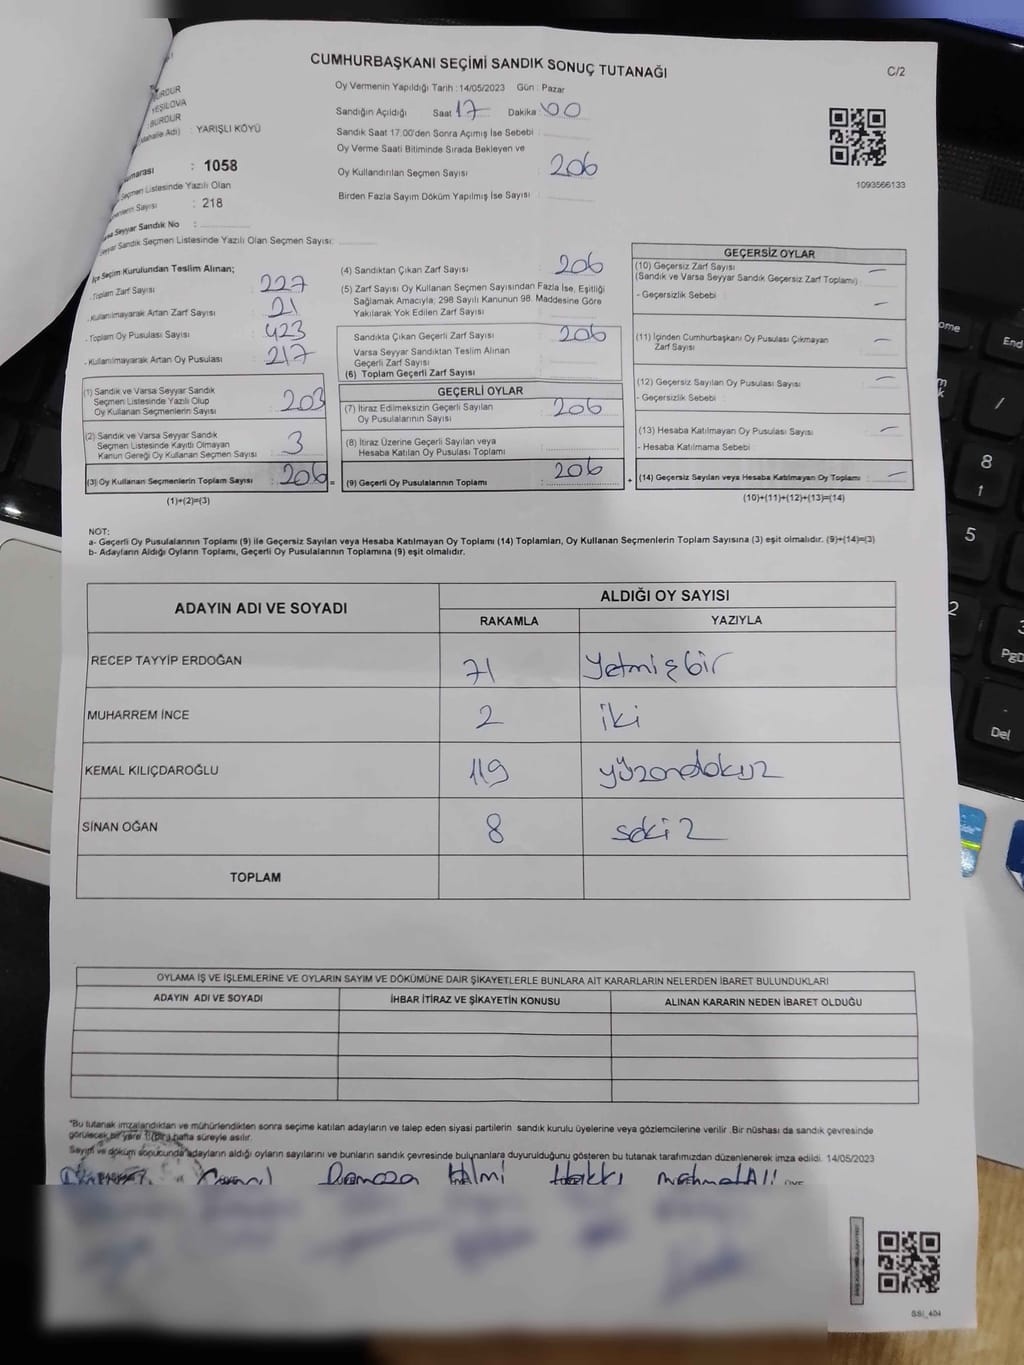 CUMHURBAŞKANI SEÇİMİ SANDIK SONUÇ TUTANAĞI
C/2
BURDUR
YEŞİLOVA
: BURDUR
Mahalle Adı) : YARIŞLI KÖYÜ
: 1058
Seçmen Listesinde Yazılı Olan
Sayısı : 218
Seyyar Sandık No :
Seyyar Sandık Seçmen Listesinde Yazılı Olan Seçmen Sayısı:
Oy Vermenin Yapıldığı Tarih : 14/05/2023 Gün : Pazar
Sandığın Açıldığı Saat 17 Dakika 00
Sandık Saat 17:00'den Sonra Açımış İse Sebebi :
Oy Verme Saati Bitiminde Sırada Bekleyen ve
Oy Kullandırılan Seçmen Sayısı : 206
Birden Fazla Sayım Döküm Yapılmış İse Sayısı :
1093566133
İlçe Seçim Kurulundan Teslim Alınan;
- Toplam Zarf Sayısı : 227
- Kullanılmayarak Artan Zarf Sayısı : 21
- Toplam Oy Pusulası Sayısı : 423
- Kullanılmayarak Artan Oy Pusulası : 217
(1) Sandık ve Varsa Seyyar Sandık
Seçmen Listesinde Yazılı Olup
Oy Kullanan Seçmenlerin Sayısı : 203
(2) Sandık ve Varsa Seyyar Sandık
Seçmen Listesinde Kayıtlı Olmayan
Kanun Gereği Oy Kullanan Seçmen Sayısı : 3
(3) Oy Kullanan Seçmenlerin Toplam Sayısı : 206 =
(1)+(2)=(3)
(4) Sandıktan Çıkan Zarf Sayısı : 206
(5) Zarf Sayısı Oy Kullanan Seçmen Sayısından Fazla İse, Eşitliği
Sağlamak Amacıyla, 298 Sayılı Kanunun 98. Maddesine Göre
Yakılarak Yok Edilen Zarf Sayısı :
Sandıkta Çıkan Geçerli Zarf Sayısı : 206
Varsa Seyyar Sandıktan Teslim Alınan
Geçerli Zarf Sayısı :
(6) Toplam Geçerli Zarf Sayısı :
GEÇERLİ OYLAR
(7) İtiraz Edilmeksizin Geçerli Sayılan
Oy Pusulalarının Sayısı : 206
(8) İtiraz Üzerine Geçerli Sayılan veya
Hesaba Katılan Oy Pusulası Toplamı :
(9) Geçerli Oy Pusulalarının Toplamı : 206 +
GEÇERSİZ OYLAR
(10) Geçersiz Zarf Sayısı : —
(Sandık ve Varsa Seyyar Sandık Geçersiz Zarf Toplamı)
- Geçersizlik Sebebi : —
(11) İçinden Cumhurbaşkanı Oy Pusulası Çıkmayan
Zarf Sayısı : —
(12) Geçersiz Sayılan Oy Pusulası Sayısı : —
- Geçersizlik Sebebi :
(13) Hesaba Katılmayan Oy Pusulası Sayısı : —
- Hesaba Katılmama Sebebi :
(14) Geçersiz Sayılan veya Hesaba Katılmayan Oy Toplamı : —
(10)+(11)+(12)+(13)=(14)
NOT:
a- Geçerli Oy Pusulalarının Toplamı (9) ile Geçersiz Sayılan veya Hesaba Katılmayan Oy Toplamı (14) Toplamları, Oy Kullanan Seçmenlerin Toplam Sayısına (3) eşit olmalıdır. (9)+(14)=(3)
b- Adayların Aldığı Oyların Toplamı, Geçerli Oy Pusulalarının Toplamına (9) eşit olmalıdır.
ADAYIN ADI VE SOYADI
ALDIĞI OY SAYISI
RAKAMLA YAZIYLA
RECEP TAYYİP ERDOĞAN 71 yetmişbir
MUHARREM İNCE 2 iki
KEMAL KILIÇDAROĞLU 119 yüzondokuz
SİNAN OĞAN 8 sekiz
TOPLAM
OYLAMA İŞ VE İŞLEMLERİNE VE OYLARIN SAYIM VE DÖKÜMÜNE DAİR ŞİKAYETLERLE BUNLARA AİT KARARLARIN NELERDEN İBARET BULUNDUKLARI
ADAYIN ADI VE SOYADI İHBAR İTİRAZ VE ŞİKAYETİN KONUSU ALINAN KARARIN NEDEN İBARET OLDUĞU
"Bu tutanak imzalandıktan ve mühürlendikten sonra seçime katılan adayların ve talep eden siyasi partilerin sandık kurulu üyelerine veya gözlemcilerine verilir .Bir nüshası da sandık çevresinde
görülecek bir yere 1(bir) hafta süreyle asılır.
Sayım ve döküm sonucunda adayların aldığı oyların sayılarını ve bunların sandık çevresinde bulunanlara duyurulduğunu gösteren bu tutanak tarafımızdan düzenlenerek imza edildi. 14/05/2023
Hilmi Hakkı Mehmet Ali
SSİ_404
End
/
8
1
5
2
Del